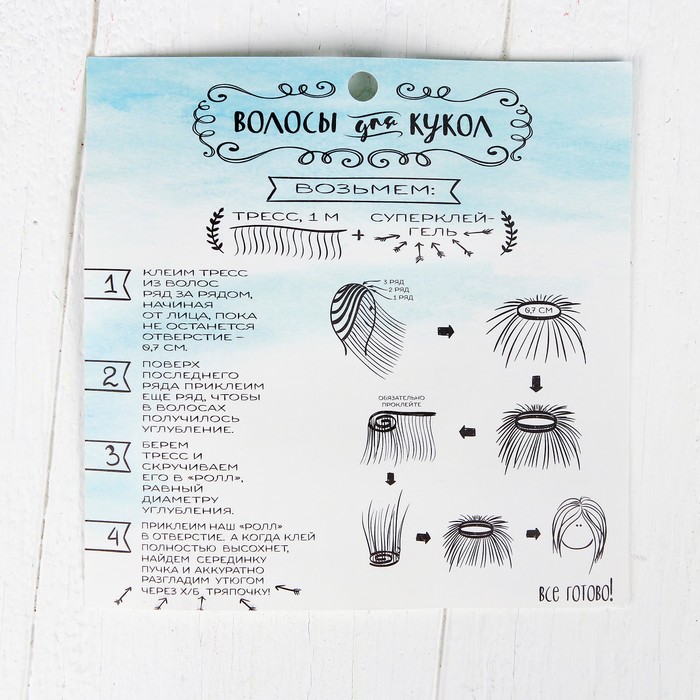 ВОЛОСЫ для КУКОЛ
ВОЗЬМЕМ:
ТРЕСС, 1 М + СУПЕРКЛЕЙ-
ГЕЛЬ
1
КЛЕИМ ТРЕСС
ИЗ ВОЛОС
РЯД ЗА РЯДОМ,
НАЧИНАЯ
ОТ ЛИЦА, ПОКА
НЕ ОСТАНЕТСЯ
ОТВЕРСТИЕ –
0,7 СМ.
2
ПОВЕРХ
ПОСЛЕДНЕГО
РЯДА ПРИКЛЕИМ
ЕЩЕ РЯД, ЧТОБЫ
В ВОЛОСАХ
ПОЛУЧИЛОСЬ
УГЛУБЛЕНИЕ.
3
БЕРЕМ
ТРЕСС И
СКРУЧИВАЕМ
ЕГО В «РОЛЛ»,
РАВНЫЙ
ДИАМЕТРУ
УГЛУБЛЕНИЯ.
4
ПРИКЛЕИМ НАШ «РОЛЛ»
В ОТВЕРСТИЕ. А КОГДА КЛЕЙ
ПОЛНОСТЬЮ ВЫСОХНЕТ,
НАЙДЕМ СЕРЕДИНКУ
ПУЧКА И АККУРАТНО
РАЗГЛАДИМ УТЮГОМ
ЧЕРЕЗ Х/Б ТРЯПОЧКУ!
3 РЯД
2 РЯД
1 РЯД
0,7 СМ
ОБЯЗАТЕЛЬНО
ПРОКЛЕЙТЕ
ВСЕ ГОТОВО!